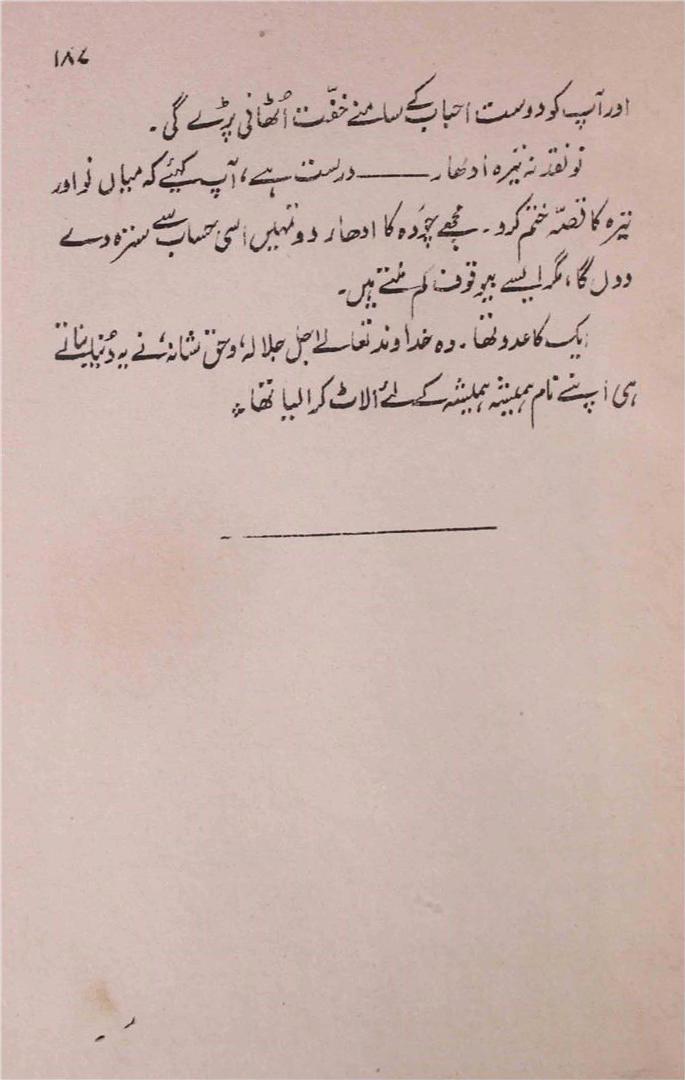 ۱۸۷
اور آپ کو دوست احباب کے سامنے خفّت اُٹھانی پڑے گی۔
نو نقد نہ تیرہ اُدھار ــــــــ درست ہے، آپ کہئے کہ میاں نو اور
تیرہ کا قصّہ ختم کرو۔ مجھے چودہ کا ادھار دو تمہیں اسی حساب سے سترہ دے
دوں گا، مگر ایسے بیوقوف کم مُلتے ہیں۔
ایک کا عدد تھا۔ وہ خداوند تعالےٰ اجل جلالہٗ، وحق شانہٗ، نے یہ دُنیا بناتے
ہی اپنے نام ہمیشہ ہمیشہ کے لئے الاٹ کرا لیا تھا؞